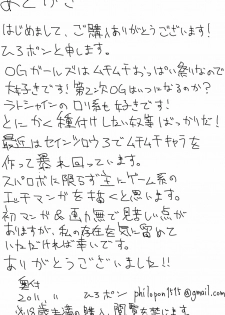 あとがき
はじめまして、ご購入ありがとうございます!
ひろポンと申します。
OGガールズはムチムチおっぱい祭りなので
大好きです!第2次OGはいつになるのか?
ラトシャインのロリ系も好きです!
とにかく種付けしたい女等ばっかりだ!
最近はセインツロウ3でムチムチキャラを
作って暴れ回っています。
スパロボに限らず主にゲーム系の
エロ千マンガを描くと思います。
初マンガ&画力無で見苦しい点が
ありますが、私の存在を気に留めて
いただければ幸いです。
ありがとうございました!!
2011 ひろポン philopon1515@gmail.com
18歳未満の購入、閲覧を禁じます